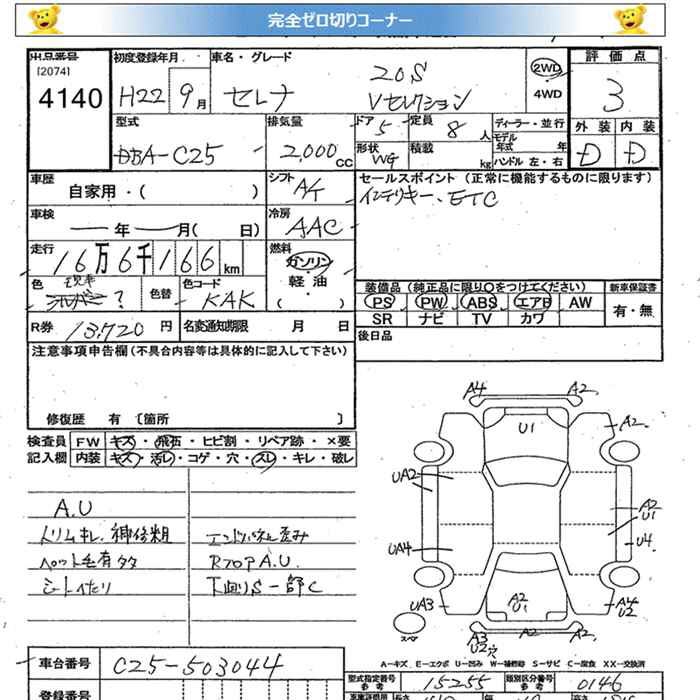 完全ゼロ切りコーナー
出品番号 初度登録年月 車名・グレード 評価点
[2074] 20S 2WD
4140 H22 9月 セレナ Vセレクション 4WD 3
型式 排気量 ドア 5 定員 8人 ディーラー・並行 外装 内装
モデル年式 年
DBA-C25 2,000cc 形状 WG 積載 kg ハンドル 左・右 D D
車歴 シフト セールスポイント(正常に機能するものに限ります)
自家用・( ) A4 インテリキー、ETC
車検 冷房
年 月( 日) AAC
走行 燃料
16万6千166km ガソリン
色 色替 色コード 軽油 装備品(純正品に限り○をつけてください) 新車保証書
? KAK ( ) PS PW ABS エアB AW 有・無
SR ナビ TV カワ
R券 13,720円 名変通知期限 月 日 後日品
注意事項申告欄(不具合内容等は具体的に記入して下さい)
修復歴 有 〔箇所 〕
A4 A2
U1 A2
検査員 FW キズ・飛石・ヒビ割・リペア跡・×要
記入欄 内装 キズ・汚レ・コゲ・穴・スレ・キレ・破レ
UA2
A.U A2
U1
トリムキレ、補修粗 エンドパネル歪み
UA4 U4
ペット毛有 RフロアA.U
シートヘタリ 下廻りS一部C
UA3 A2 U1 A4 U2
スペア
A3 U2穴 A2 A2
A-キズ E-エクボ U-凹み W-補修跡 S-サビ C-腐食 XX-交換済
車台番号 C25-503044 型式指定番号 参考 15255 類別区分番号 参考 0146
登録番号